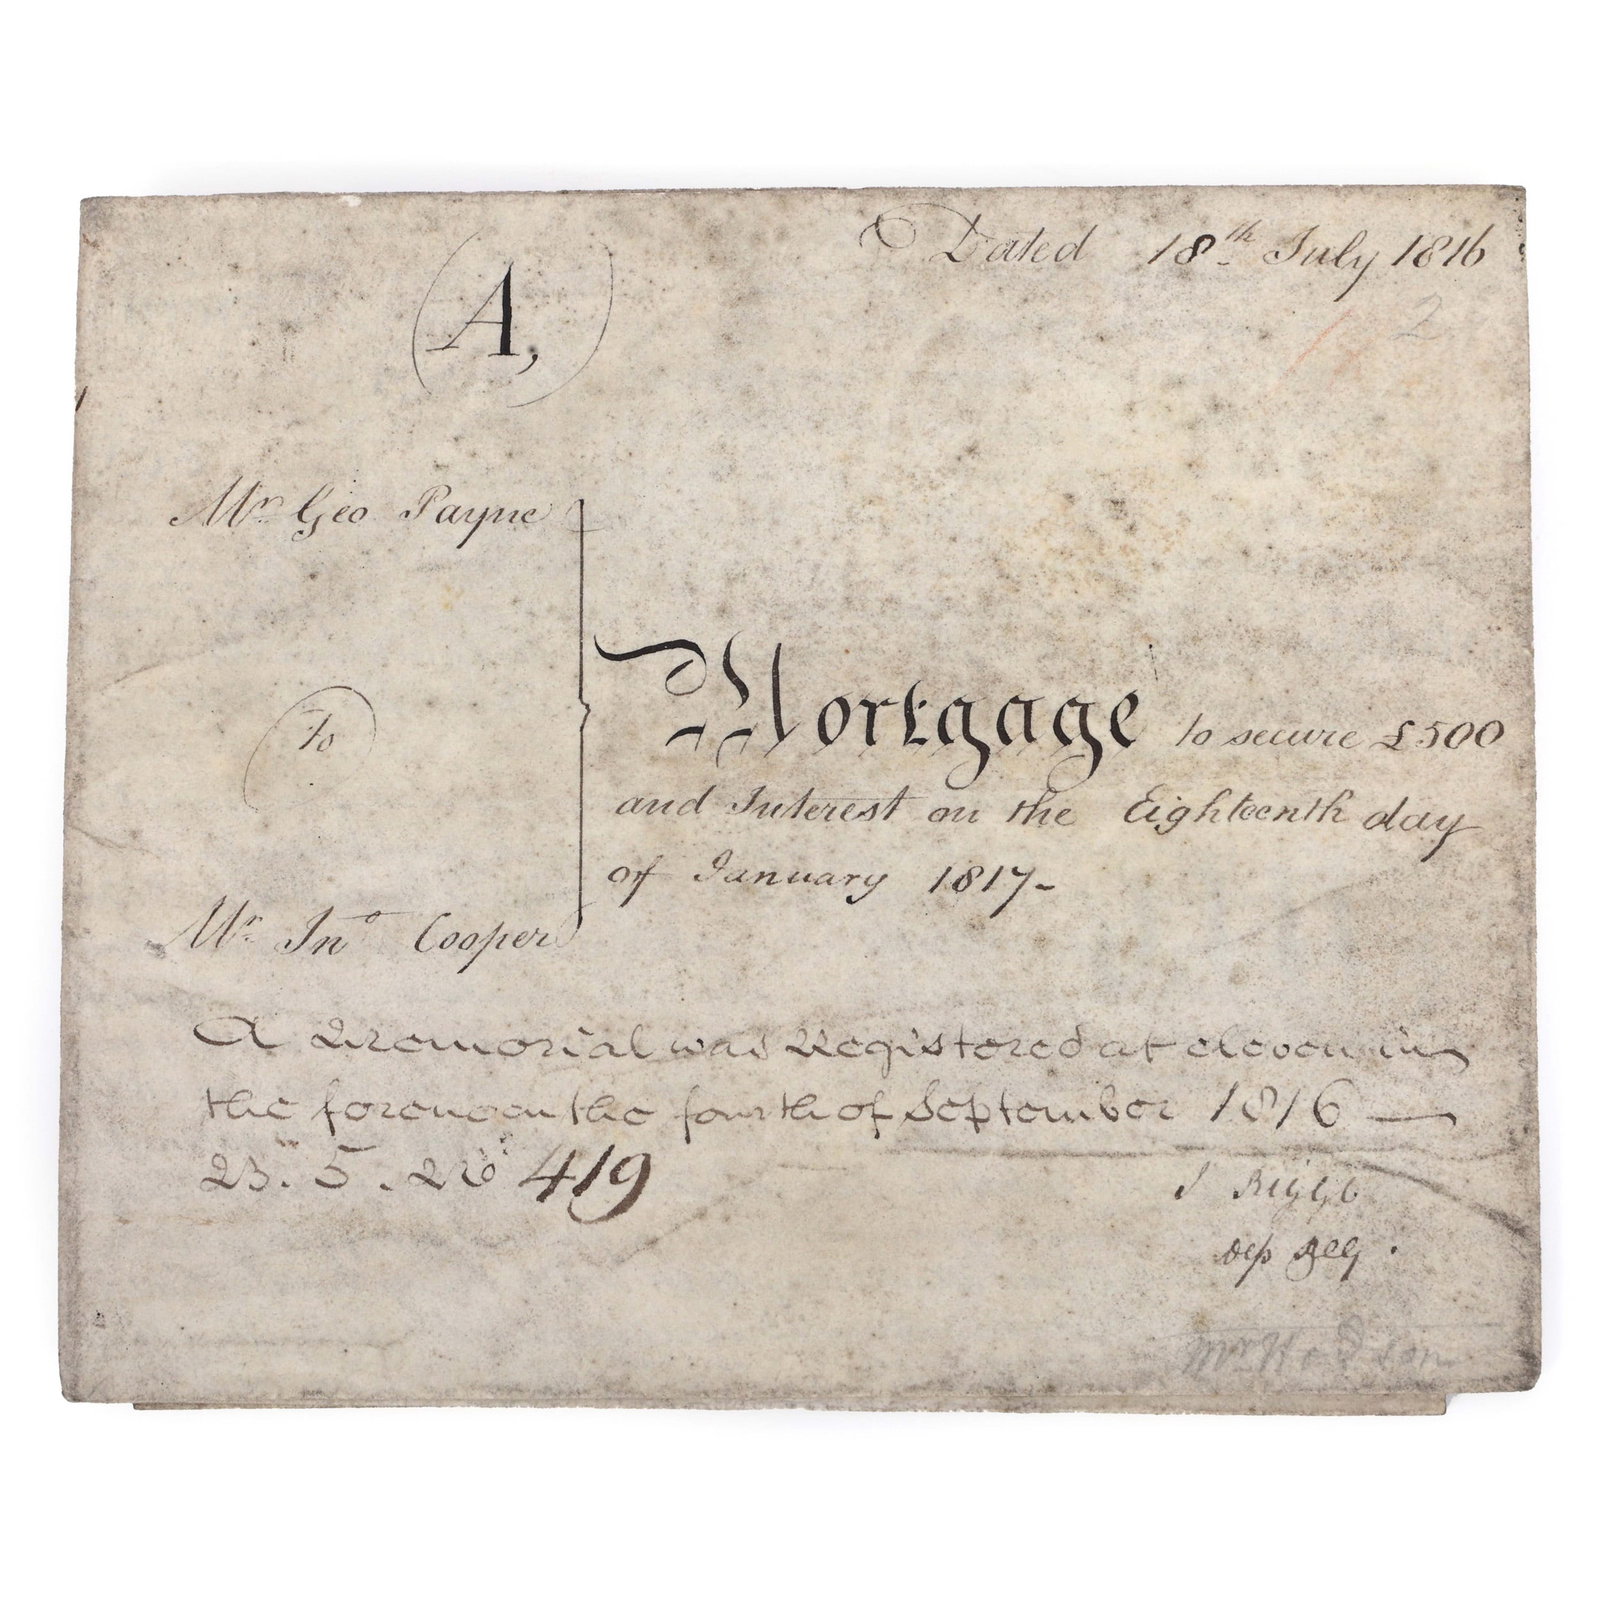 Dated 18th July 1816
2
(A,)
Mr. Geo Payne
To
Mr. Jno Cooper
Mortgage to secure £500
and Interest on the Eighteenth day
of January 1817-
A Memorial was Registered at eleven in
the forenoon the fourth of September 1816 —
B. 5. No 419
J Riggs
Dep Reg.
Mr Hodson